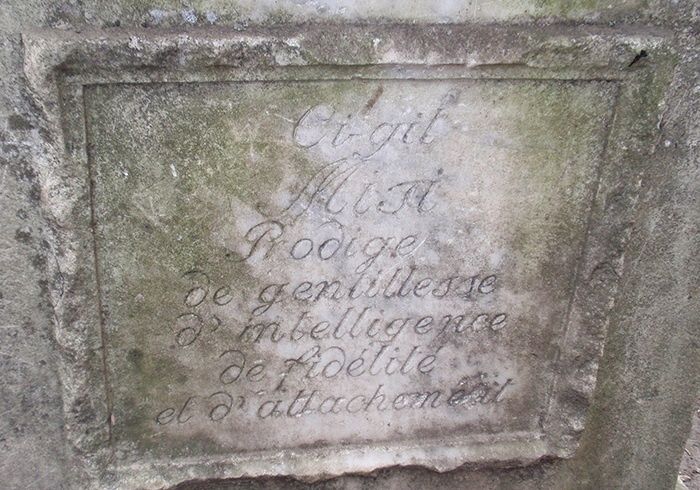 Ci-gît
Misti
Prodige
de gentillesse
d'intelligence
de fidélité
et d'attachement